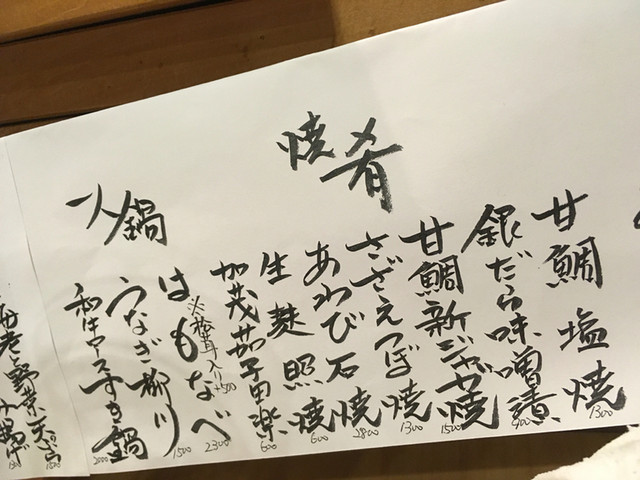 焼肴
甘鯛塩焼
1300
銀だら味噌漬
900
甘鯛新ジャガ焼
1500
さざえつぼ焼
1300
あわび石焼
2800
生麩照焼
600
加茂茄子田楽
600
一人鍋
はもなべ
2300
※松茸入り+500
うなぎ柳川
1500
和牛すき鍋
2000
野菜天ぷら
1500